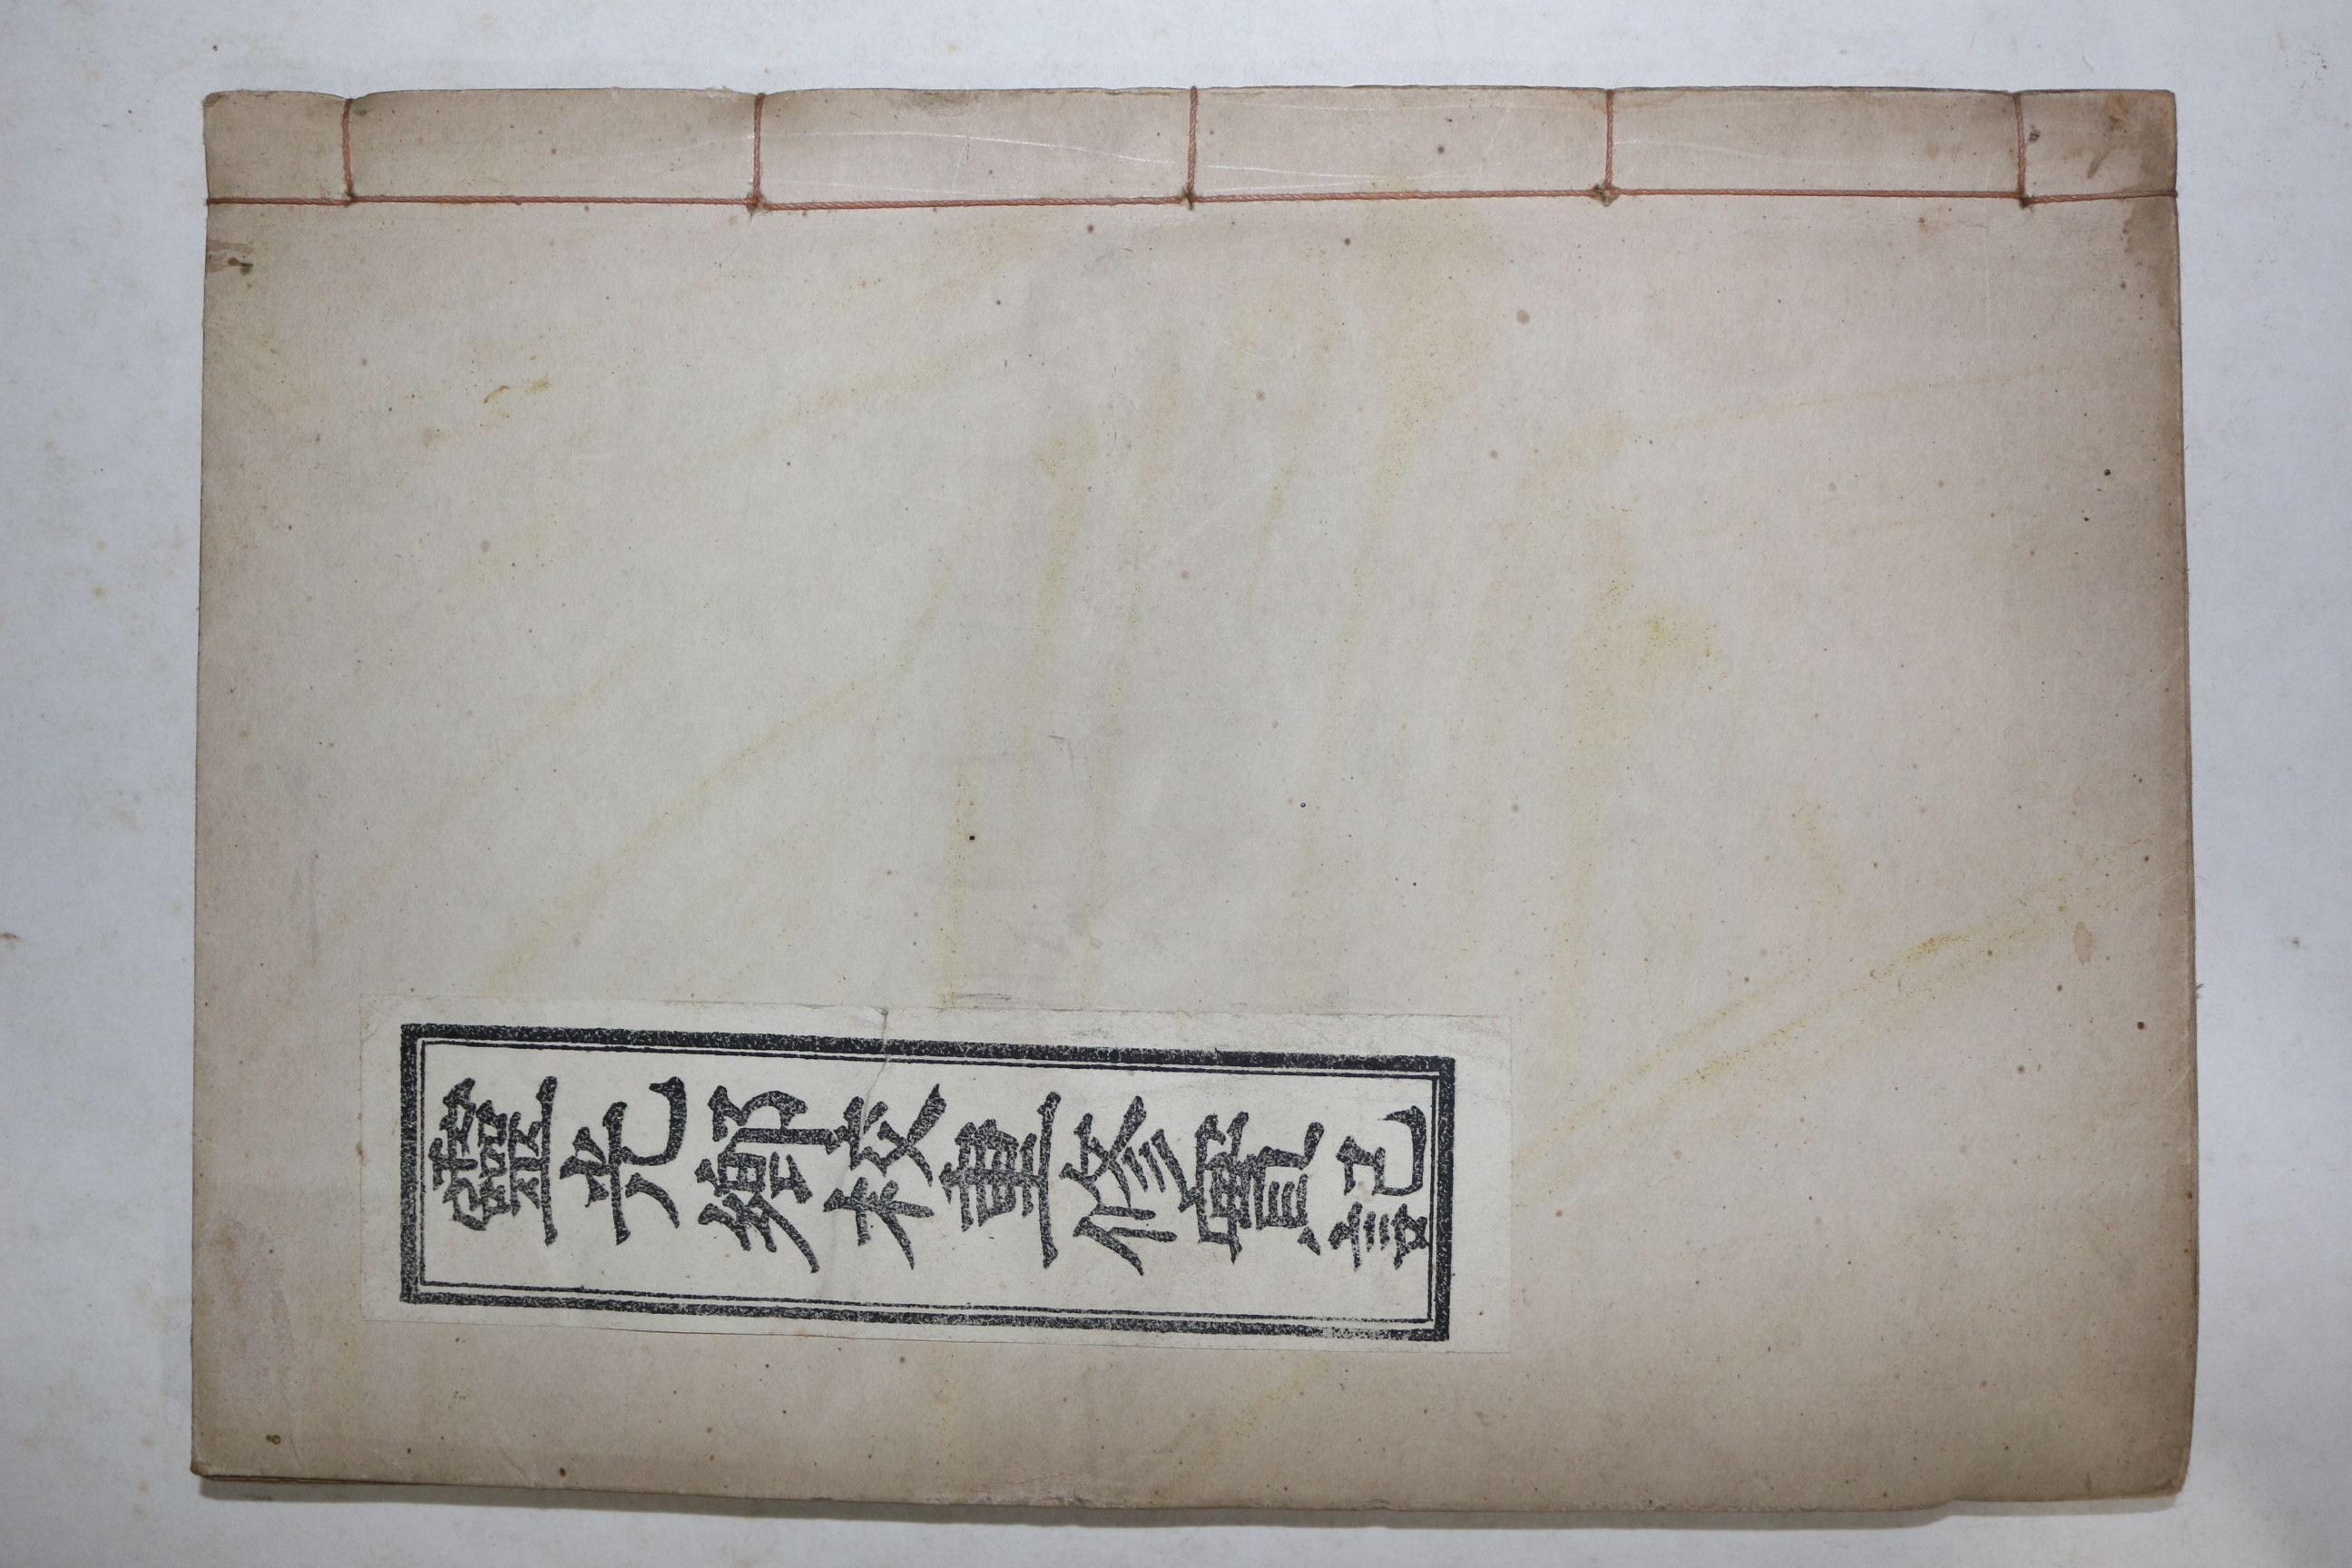 靈光鄕校重修實記